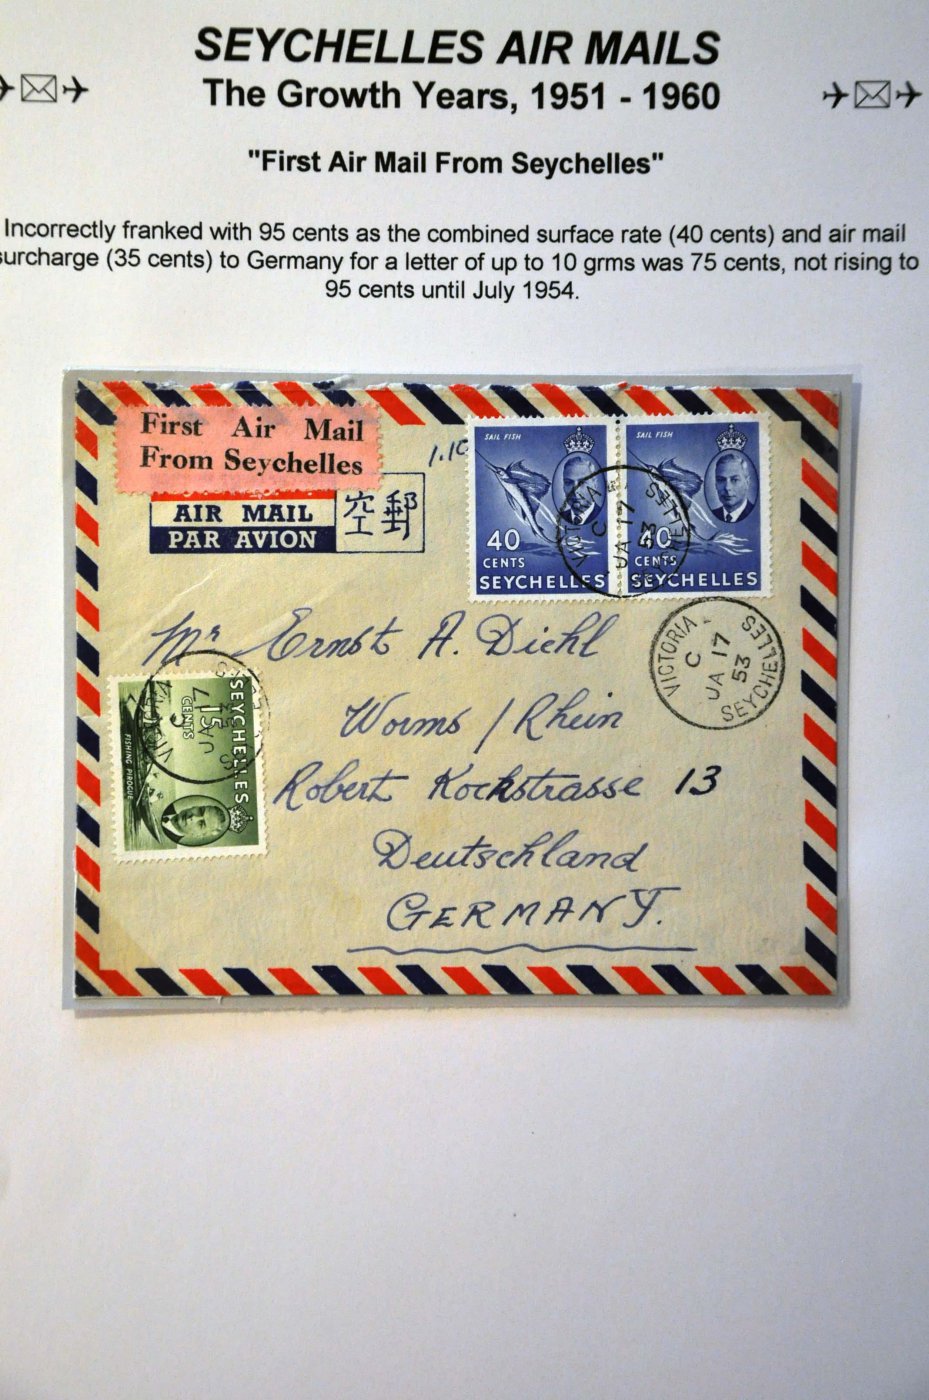 SEYCHELLES AIR MAILS
The Growth Years, 1951 - 1960
"First Air Mail From Seychelles"
Incorrectly franked with 95 cents as the combined surface rate (40 cents) and air mail
surcharge (35 cents) to Germany for a letter of up to 10 grms was 75 cents, not rising to
95 cents until July 1954.
First Air Mail
From Seychelles
AIR MAIL
PAR AVION
空郵
SAIL FISH
40
CENTS
SEYCHELLES
SAIL FISH
40
CENTS
SEYCHELLES
VICTORIA
C
JA 17
53
SEYCHELLES
VICTORIA
C
JA 17
53
SEYCHELLES
Mr Ernst A. Diehl
Worms / Rhein
Robert Kochstrasse 13
Deutschland
GERMANY.
SEYCHELLES
15
CENTS
FISHING PIROGUE
VICTORIA
C
JA 17